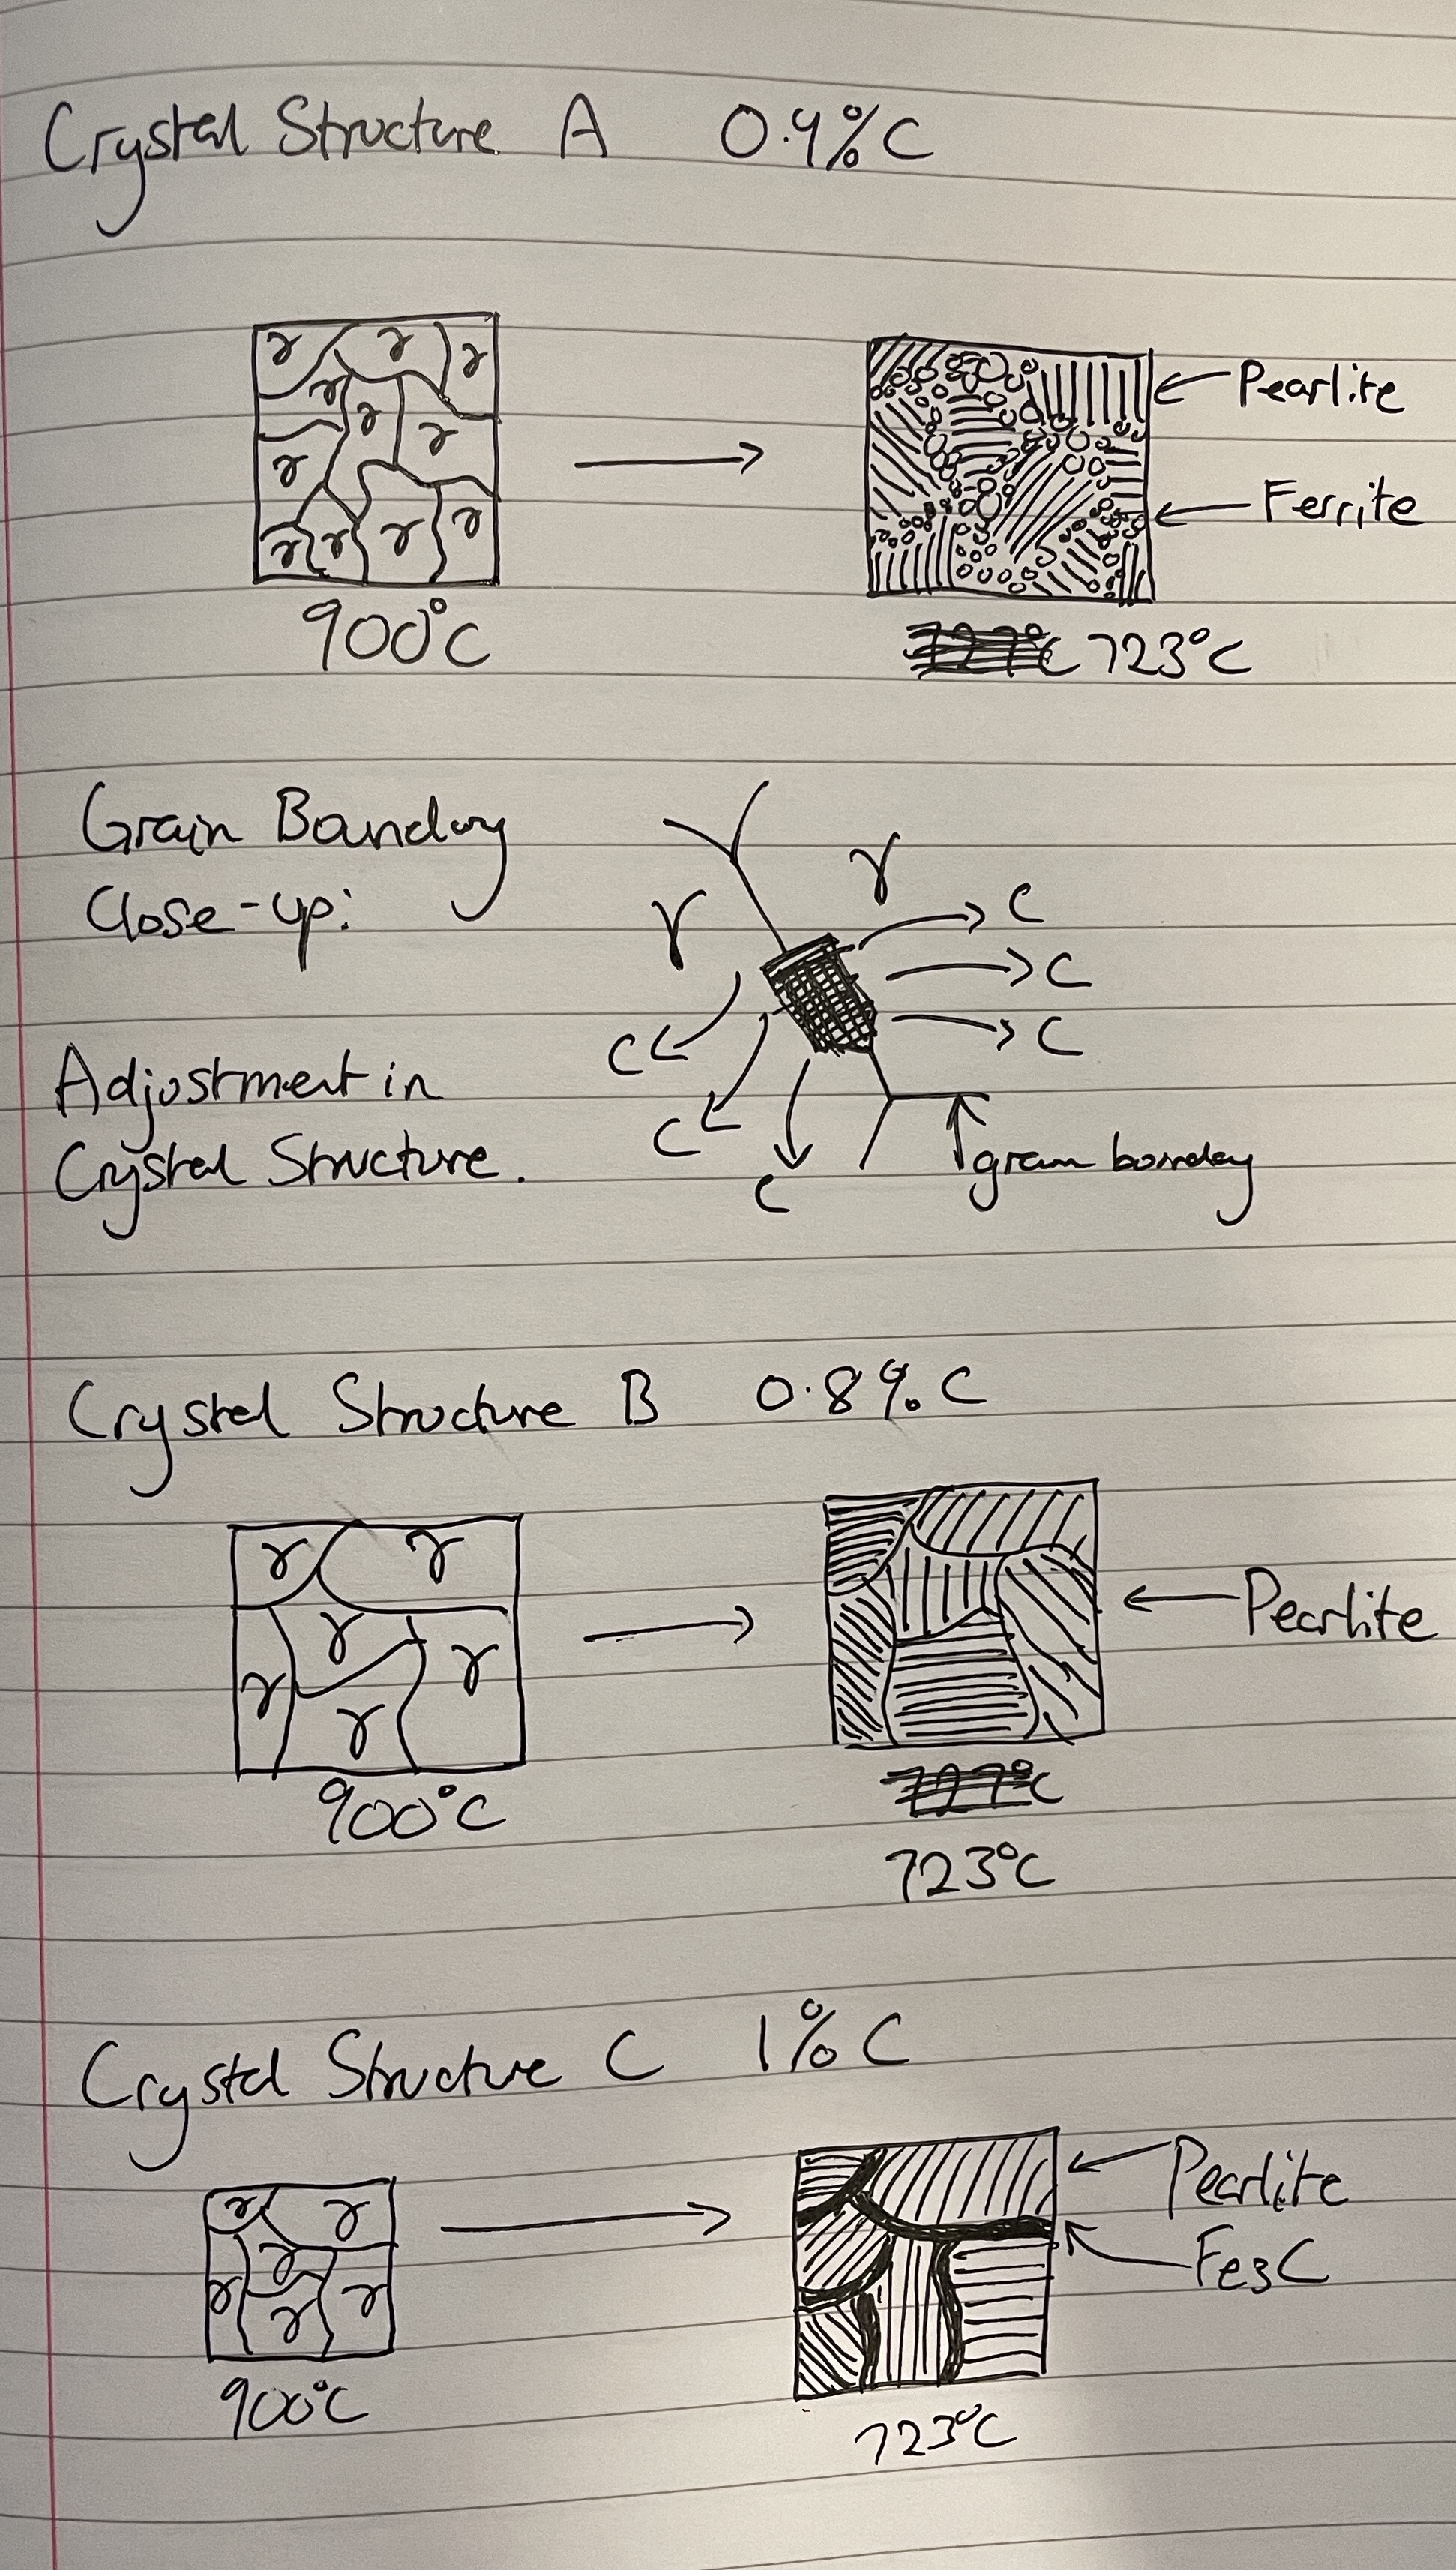 Crystal Structure A 0.4% C
γ γ γ
γ γ
γ γ
γ γ γ γ
Pearlite
Ferrite
900°C
727°C 723°C
Grain Boundary
Close-up:
γ γ
C
C
C
C
C
C
Adjustment in
Crystal Structure.
grain boundary
Crystal Structure B 0.8% C
γ γ
γ γ
γ γ
Pearlite
900°C
727°C
723°C
Crystal Structure C 1% C
γ γ
γ
γ γ
γ
Pearlite
Fe3C
900°C
723°C